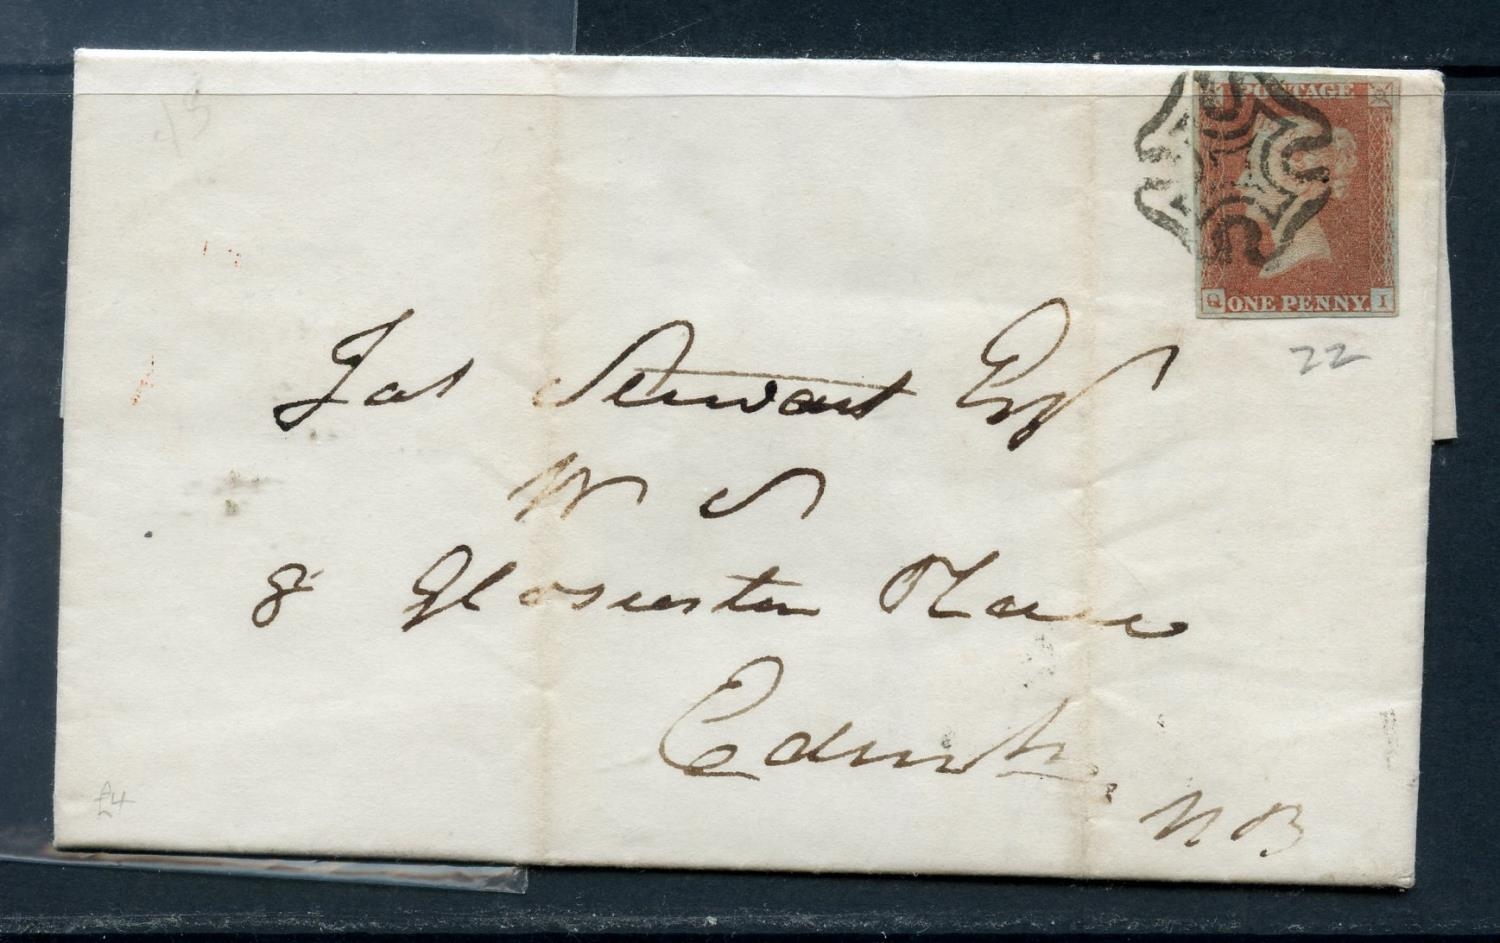 POSTAGE
Q ONE PENNY. I
22
Jas Stewart Esqr
W S
8 Gloucester Place
Edinr
N B
£4